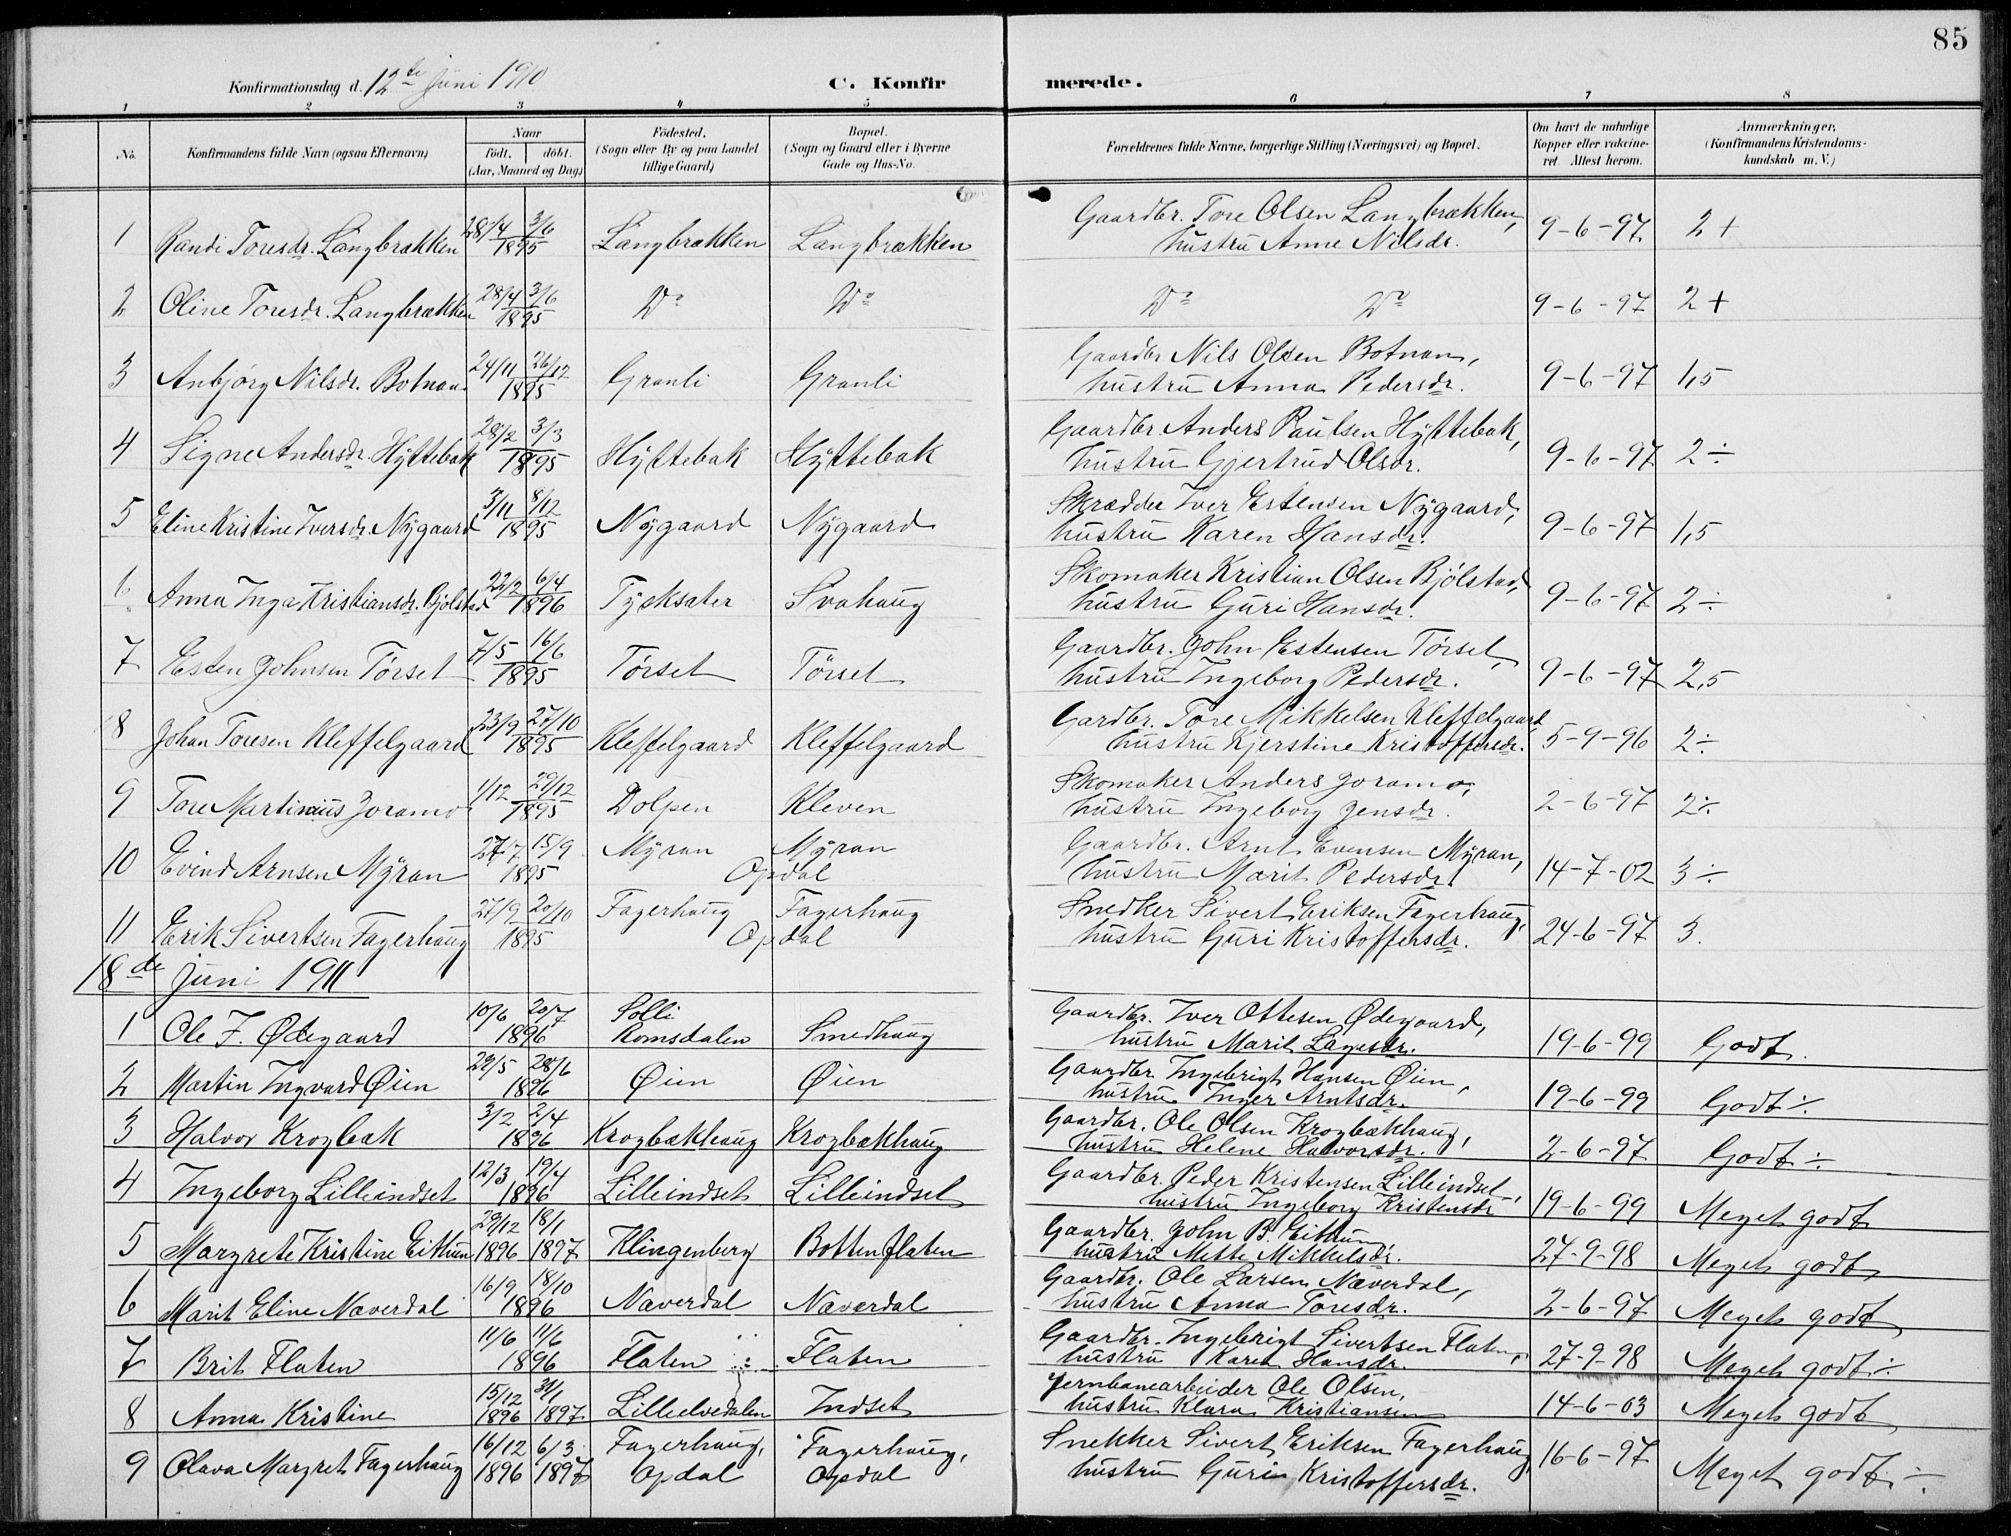 85
Konfirmationsdag d. 12te Juni 1910
C. Konfirmerede.
1 2 3 4 5 6 7 8
No.
Konfirmandens fulde Navn (ogsaa Efternavn)
Naar
født. døbt.
(Aar, Maaned og Dag)
Fødested.
(Sogn eller By og paa Landet
tillige Gaard)
Bopæl.
(Sogn og Gaard eller i Byerne
Gade og Hus-No.
Forældrenes fulde Navne, borgerlige Stilling (Næringsvei) og Bopæl.
Om havt de naturlige
Kopper eller vakcine-
ret Attest herom.
Anmærkninger,
(Konfirmandens Kristendoms-
kundskab m. V.)
1 Randi Toresdr. Langbrækken 28/4 3/6 1895 Langbrækken Langbrækken Gaardbr. Tore Olsen Langbrækken, hustru Anne Nilsdr. 9-6-97 2+
2 Oline Toresdr. Langbrækken 28/4 3/6 1895 Do Do Do Do 9-6-97 2+
3 Anbjørg Nilsdr. Botnan 24/11 26/12 1895 Granli Granli Gaardbr Nils Olsen Botnan, hustru Anna Pedersdr. 9-6-97 1,5
4 Signe Andersdr. Hyttebak 28/2 3/3 1895 Hyttebak Hyttebak Gaardbr. Anders Paulsen Hyttebak, hustru Gjertrud Olsdr. 9-6-97 2÷
5 Eline Kristine Iversdr. Nygaard 3/11 8/12 1895 Nygaard Nygaard Skrædder Iver Estensen Nygaard, hustru Karen Hansdr. 9-6-97 1,5
6 Anna Inga Kristiansdr. Bjølstad 22/2 6/4 1896 Tysksæter Svahaug Skomaker Kristian Olsen Bjølstad, hustru Guri Hansdr. 9-6-97 2÷
7 Esten Johnsen Tørset 7/5 16/6 1895 Tørset Tørset Gaardbr. John Estensen Tørset, hustru Ingeborg Pedersdr. 9-6-97 2,5
8 Johan Toresen Kleffelgaard 23/9 27/10 1895 Kleffelgaard Kleffelgaard Gardbr. Tore Mikkelsen Kleffelgaard hustru Kjerstine Kristoffersdr. 5-9-96 2÷
9 Tore Martinius Joramo 1/12 29/12 1895 Dolpen Kleven Skomaker Anders Joramo, hustru Ingeborg Jensdr. 2-6-97 2÷
10 Evind Arnsen Myran 27/7 15/9 1895 Myran Myran Opdal Gaardbr. Arnt Evensen Myran, hustru Marit Pedersdr. 14-7-02 3÷
11 Erik Sivertsen Fagerhaug 27/9 20/10 1895 Fagerhaug Fagerhaug Opdal Snedker Sivert Eriksen Fagerhaug, hustru Guri Kristoffersdr. 24-6-97 3.
18de Juni 1911
1 Ole I. Ødegaard 10/6 20/7 1896 Solli Romsdalen Smedhaug Gaardbr. Iver Ottesen Ødegaard, hustru Marit Lagesdr. 19-6-99 Godt.
2 Martin Ingvard Øien 29/5 28/6 1896 Øien Øien Gaardbr. Ingebrigt Hansen Øien, hustru Inger Arntsdr. 19-6-99 Godt÷
3 Halvor Krogbak 3/2 2/4 1896 Krogbækhaug Krogbækhaug Gaardbr. Ole Olsen Krogbækhaug, hustru Helene Halvorsdr. 2-6-97 Godt÷
4 Ingeborg Lilleindset 12/3 19/4 1896 Lilleindset Lilleindset Gaardbr. Peder Kristensen Lilleindset, hustru Ingeborg Kristensdr 19-6-99 Meget godt
5 Margrete Kristine Eithun 29/12 1896 18/1 1897 Klingenberg Bottenflaten Gaardbr. John B. Eithun hustru Mette Mikkelsdr. 27-9-98 Meget godt
6 Marit Eline Næverdal 16/9 18/10 1896 Næverdal Næverdal Gaardbr. Ole Larsen Næverdal, hustru Anna Toresdr. 2-6-97 Meget godt
7 Brit Flaten 11/6 11/6 1896 Flaten Flaten Gaardbr. Ingebrigt Sivertsen Flaten, hustru Karen Hansdr. 27-9-98 Meget godt÷
8 Anna Kristine 15/12 1896 31/1 1897 Lilleelvedalen Indset Jernbanearbeider Ole Olsen, hustru Klara Kristiansen 14-6-03 Meget godt
9 Olava Margret Fagerhaug 16/12 1896 6/3 1897 Fagerhaug, Opdal Fagerhaug, Opdal Snekker Sivert Eriksen Fagerhaug, hustru Guri Kristoffersdr. 16-6-97 Meget godt÷